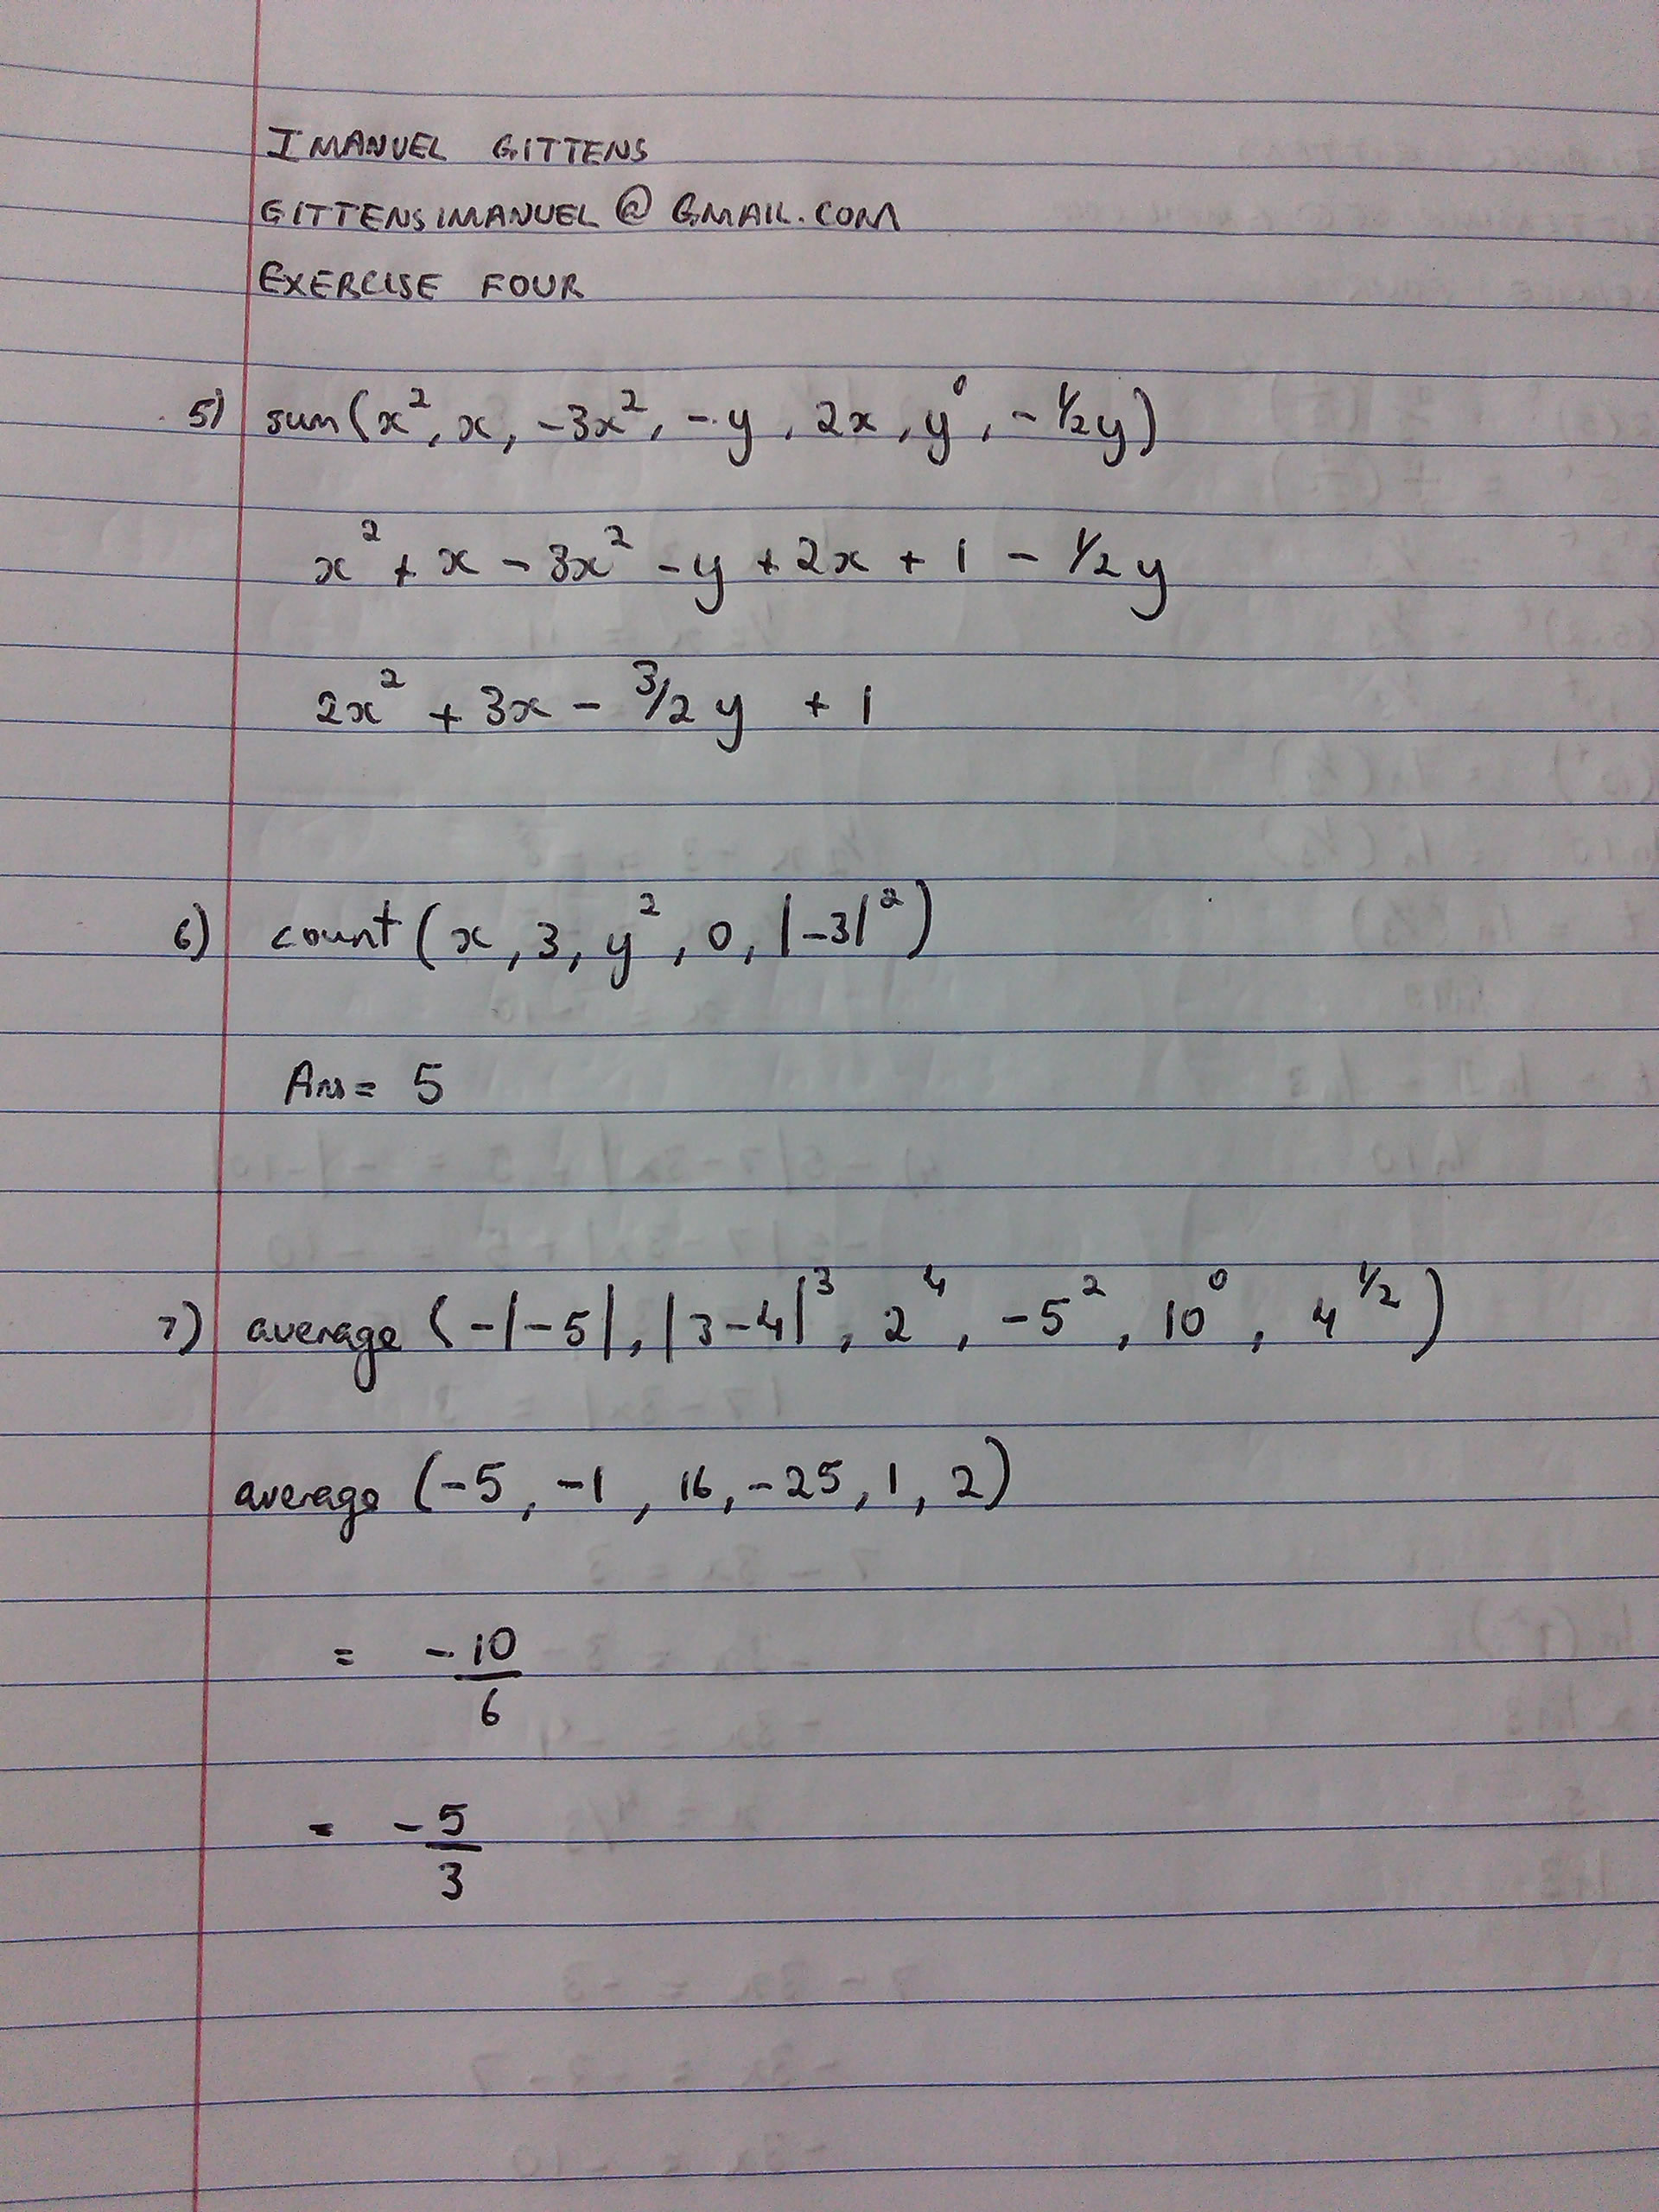 IMANUEL GITTENS
GITTENSIMANUEL@GMAIL.COM
EXERCISE FOUR
5) sum(x², x, -3x², -y, 2x, y⁰, -1/2y)
x² + x - 3x² - y + 2x + 1 - 1/2y
2x² + 3x - 3/2y + 1
6) count(x, 3, y², 0, |-3|²)
Ans = 5
7) average (-|-5|, |3-4|³, 2⁴, -5², 10⁰, 4^1/2)
average (-5, -1, 16, -25, 1, 2)
= -10/6
= -5/3